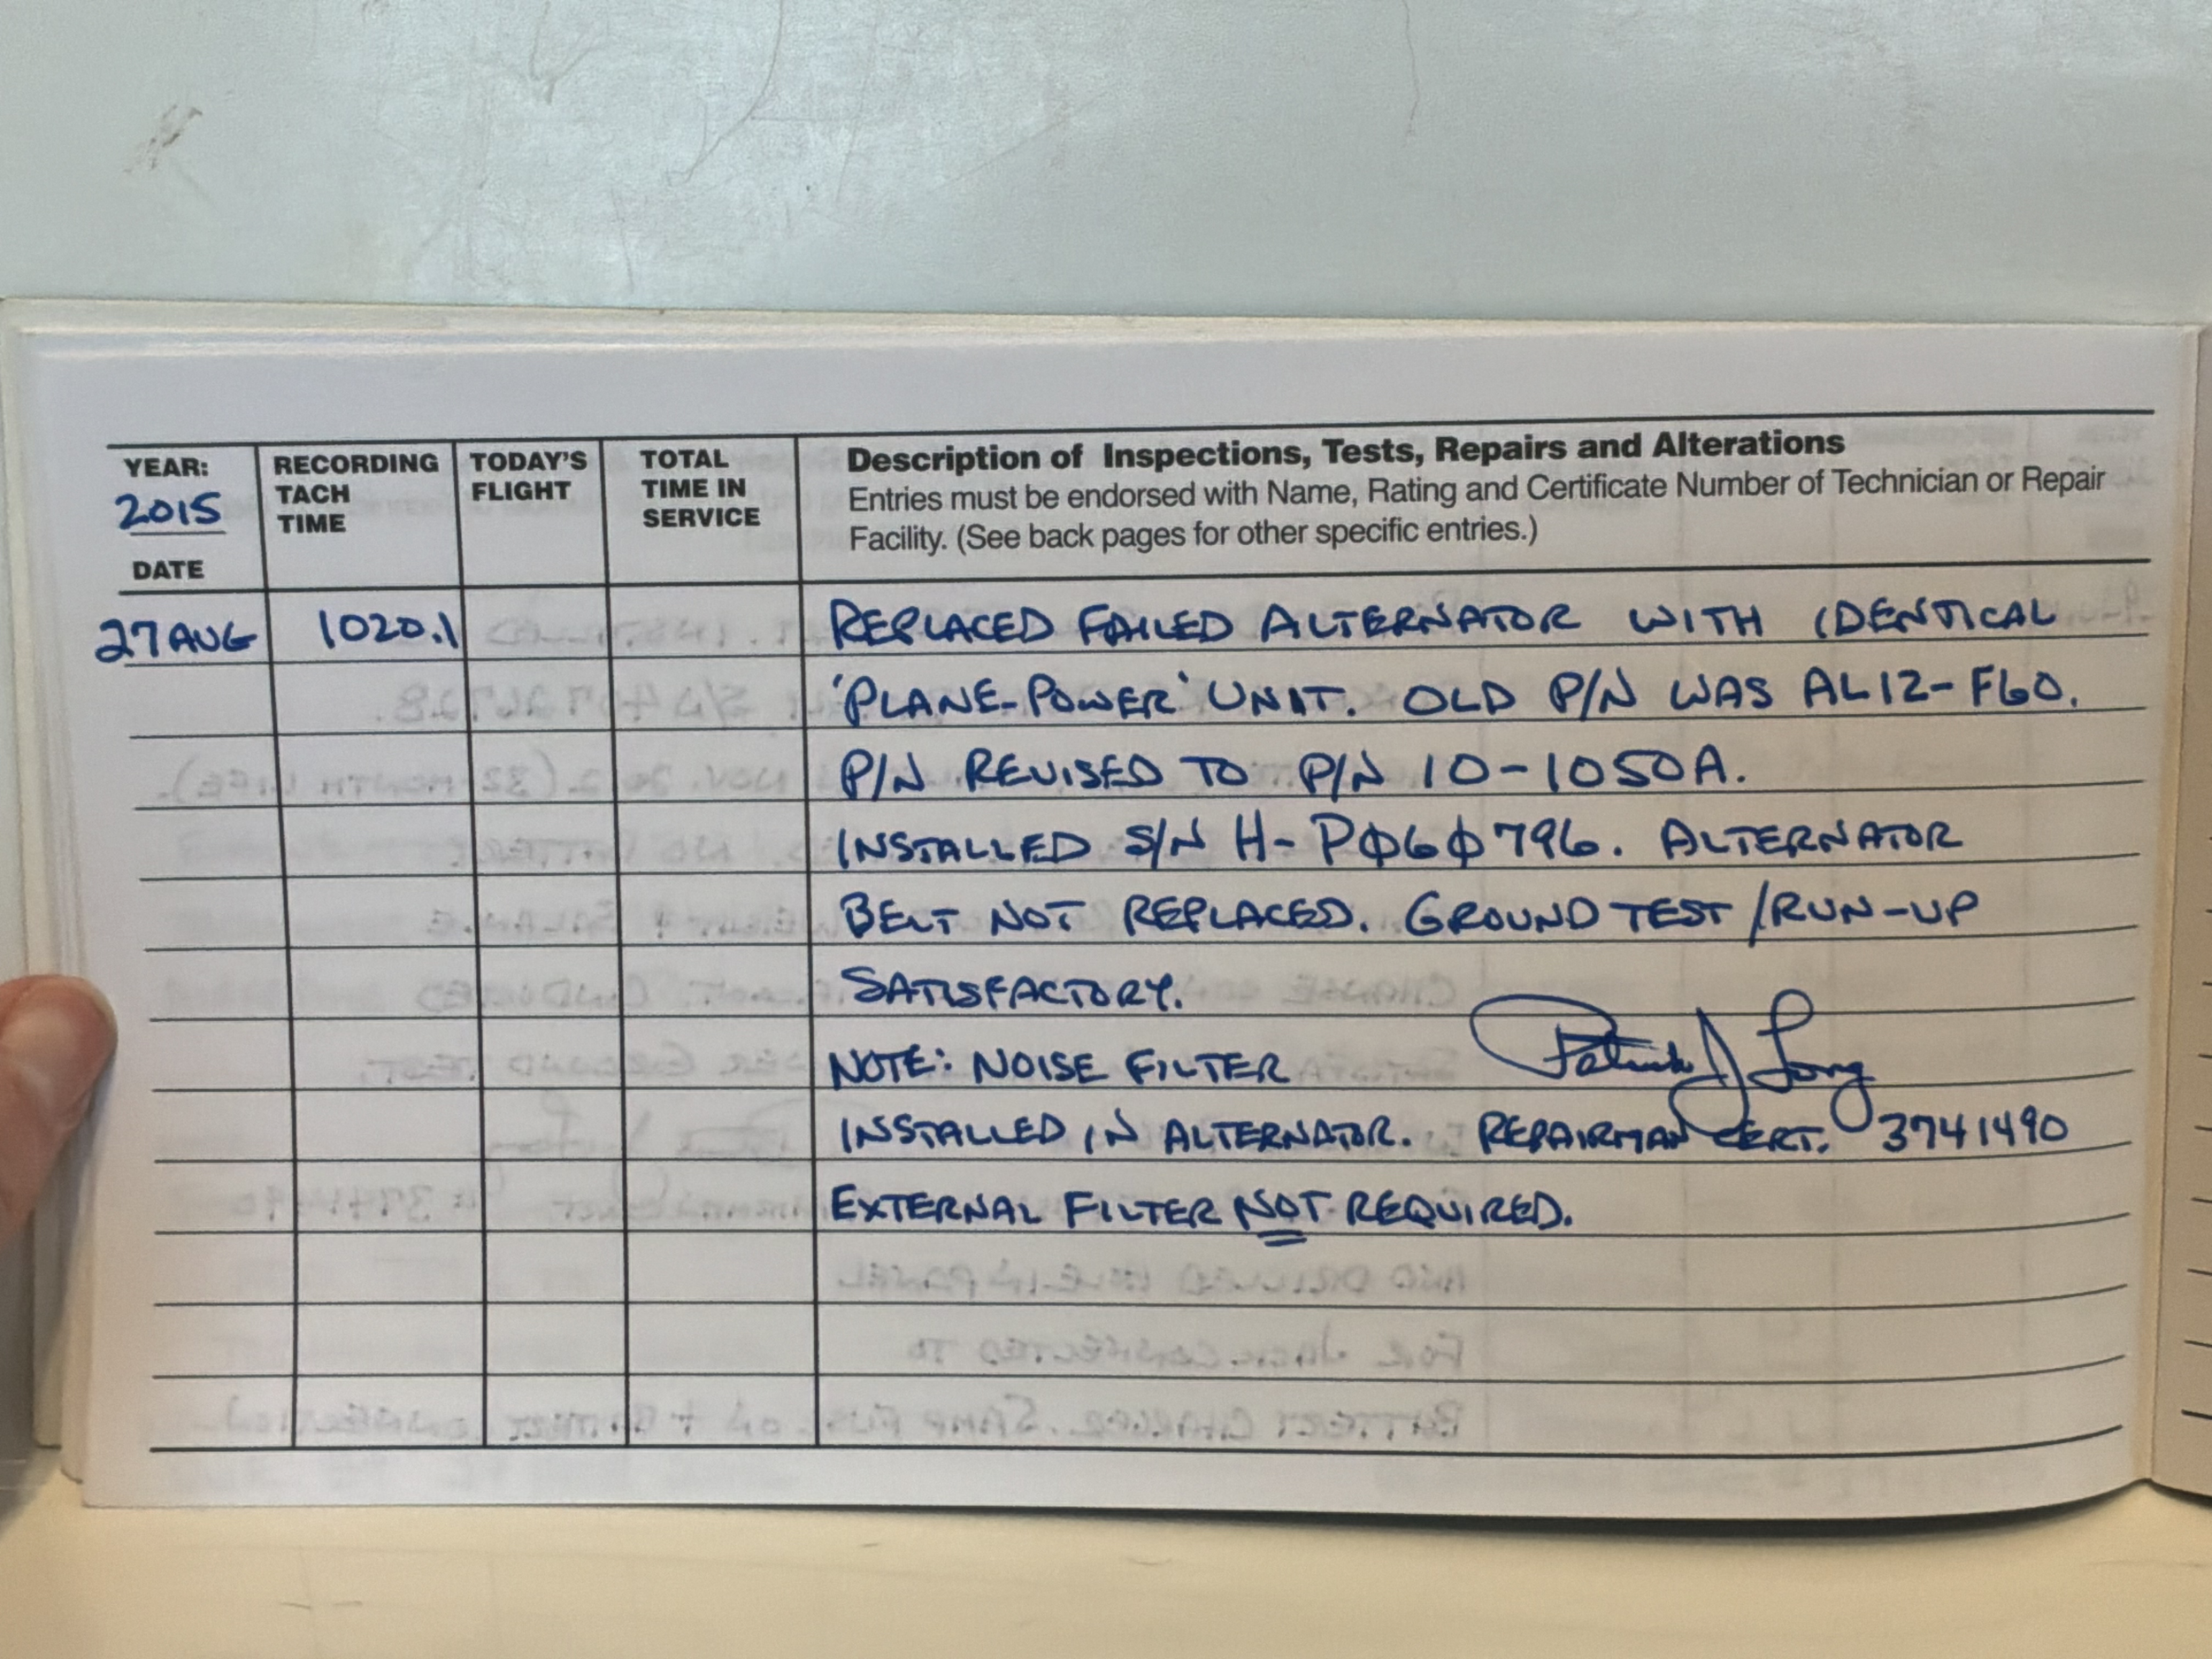 YEAR: 2015 DATE
RECORDING TACH TIME
TODAY'S FLIGHT
TOTAL TIME IN SERVICE
Description of Inspections, Tests, Repairs and Alterations
Entries must be endorsed with Name, Rating and Certificate Number of Technician or Repair
Facility. (See back pages for other specific entries.)
27 AUG 1020.1 REPLACED FAILED ALTERNATOR WITH IDENTICAL
'PLANE-POWER' UNIT. OLD P/N WAS AL12-F60.
P/N REVISED TO P/N 10-1050A.
INSTALLED S/N H-PØ6Ø796. ALTERNATOR
BELT NOT REPLACED. GROUND TEST/RUN-UP
SATISFACTORY.
NOTE: NOISE FILTER Patrick J Long
INSTALLED IN ALTERNATOR. REPAIRMAN CERT. 3741490
EXTERNAL FILTER NOT REQUIRED.